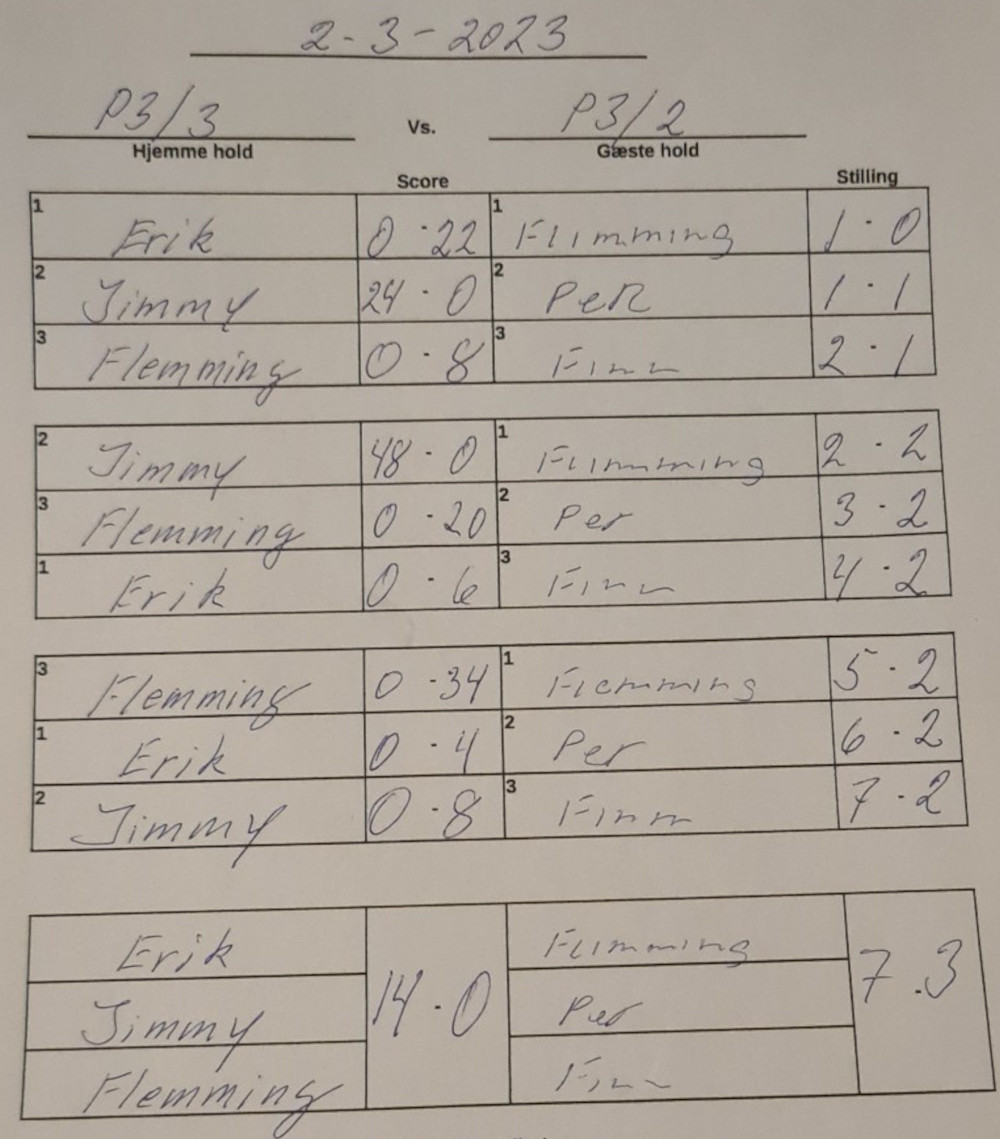 2-3-2023
P3/3 Vs. P3/2
Hjemme hold Gæste hold
Score Stilling
1 Erik 0 · 22 1 Flimming 1 · 0
2 Jimmy 24 · 0 2 PeR 1 · 1
3 Flemming 0 · 8 3 Finn 2 · 1
2 Jimmy 48 · 0 1 Flimming 2 · 2
3 Flemming 0 · 20 2 Per 3 · 2
1 Erik 0 · 6 3 Finn 4 · 2
3 Flemming 0 · 34 1 Flemming 5 · 2
1 Erik 0 · 4 2 Per 6 · 2
2 Jimmy 0 · 8 3 Finn 7 · 2
Erik Flimming
Jimmy 14 · 0 Per 7.3
Flemming Finn